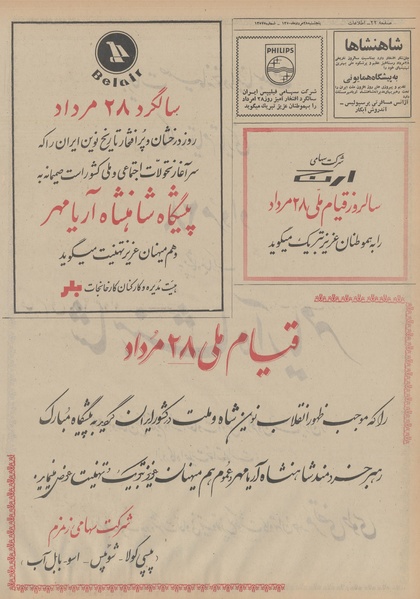 صفحه ۲۲ـ اطلاعات
شاهنشاها
به پیشگاه همایونی
PHILIPS
شرکت سهامی فیلیپس ایران
سالگرد افتخار آمیز روز ۲۸ امرداد
را بهموطنان عزیز تبریک میگوید
Belair
سالگرد ۲۸ مرداد
روز درخشان و پر افتخار تاریخ نوین ایران را که
سرآغاز تحولات اجتماعی و ملی کشور است صمیمانه به
پیشگاه شاهنشاه آریامهر
و هم میهنان عزیز تهنیت میگوید
هیئت مدیره و کارکنان کارخانجات بلر
شرکت سهامی
ارج
سالروز قیام ملی ۲۸ مرداد
را به هموطنان عزیز تبریک میگوید
قیام ملی ۲۸ مرداد
را که موجب ظهور انقلاب نوین شاه و ملت در کشور ایران گردید به پیشگاه مبارک
رهبر خردمند شاهنشاه آریامهر و عموم هم میهنان عزیز تبریک و تهنیت عرض مینماید.
شرکت سهامی زمزم
(پپسی کولا - شوئپس - اسو - بابل آپ)